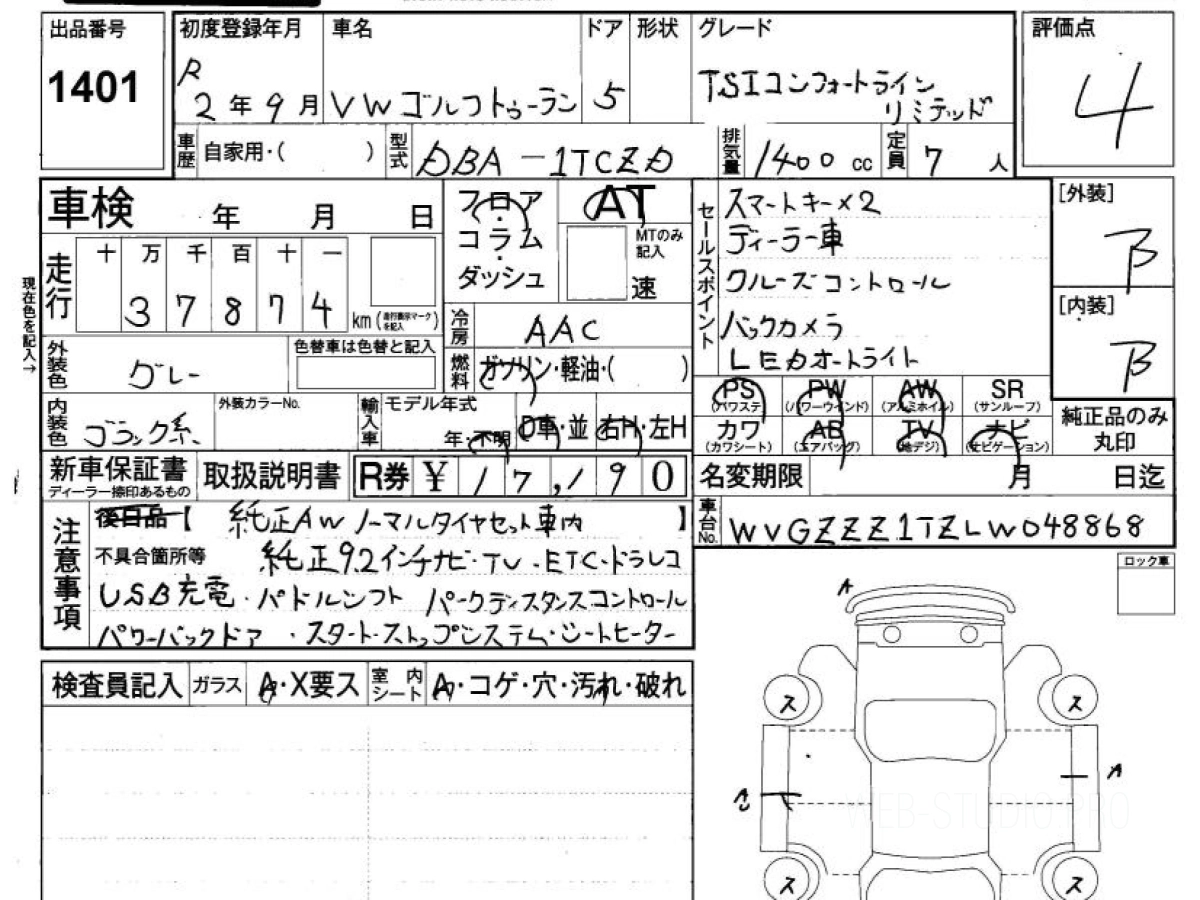 出品番号 初度登録年月 車名 ドア 形状 グレード 評価点
1401
R 2年 9月 VWゴルフトゥーラン 5 TSIコンフォートライン
リミテッド
4
車歴 自家用・( ) 型式 DBA-1TCZD 排気量 1400 cc 定員 7 人
車検 年 月 日
走行 十 万 千 百 十 一
3 7 8 7 4 km(走行表示マークを記入)
現在色を記入→
フロア
・
コラム
・
ダッシュ
AT
MTのみ
記入
速
冷房 AAC
燃料 ガソリン・軽油・( )
外装色 グレー 色替車は色替と記入
内装色 ブラック系 外装カラーNo.
輸入車 モデル年式 年・不明 D車・並 右H・左H
セールスポイント
スマートキー×2
ディーラー車
クルーズコントロール
バックカメラ
LEDオートライト
[外装]
B
[内装]
B
PS PW AW SR
(パワステ) (パワーウインド) (アルミホイル) (サンルーフ)
カワ AB TV ナビ
(カワシート) (エアバッグ) (地デジ) (ナビゲーション)
純正品のみ
丸印
新車保証書
ディーラー捺印あるもの
取扱説明書 R券 ¥ 17,190
名変期限 月 日迄
車台No. WVGZZZ1TZLW048868
注意事項
後日品【 純正AWノーマルタイヤセット車内 】
不具合箇所等 純正9.2インチナビ・TV・ETC・ドラレコ
USB充電・パドルシフト パークディスタンスコントロール
パワーバックドア ・スタート・ストップシステム・シートヒーター
検査員記入 ガラス A・X要ス 室内シート A・コゲ・穴・汚れ・破れ
ロック車
A
ス ス
A
WEB-STUDIO.PRO
ス ス